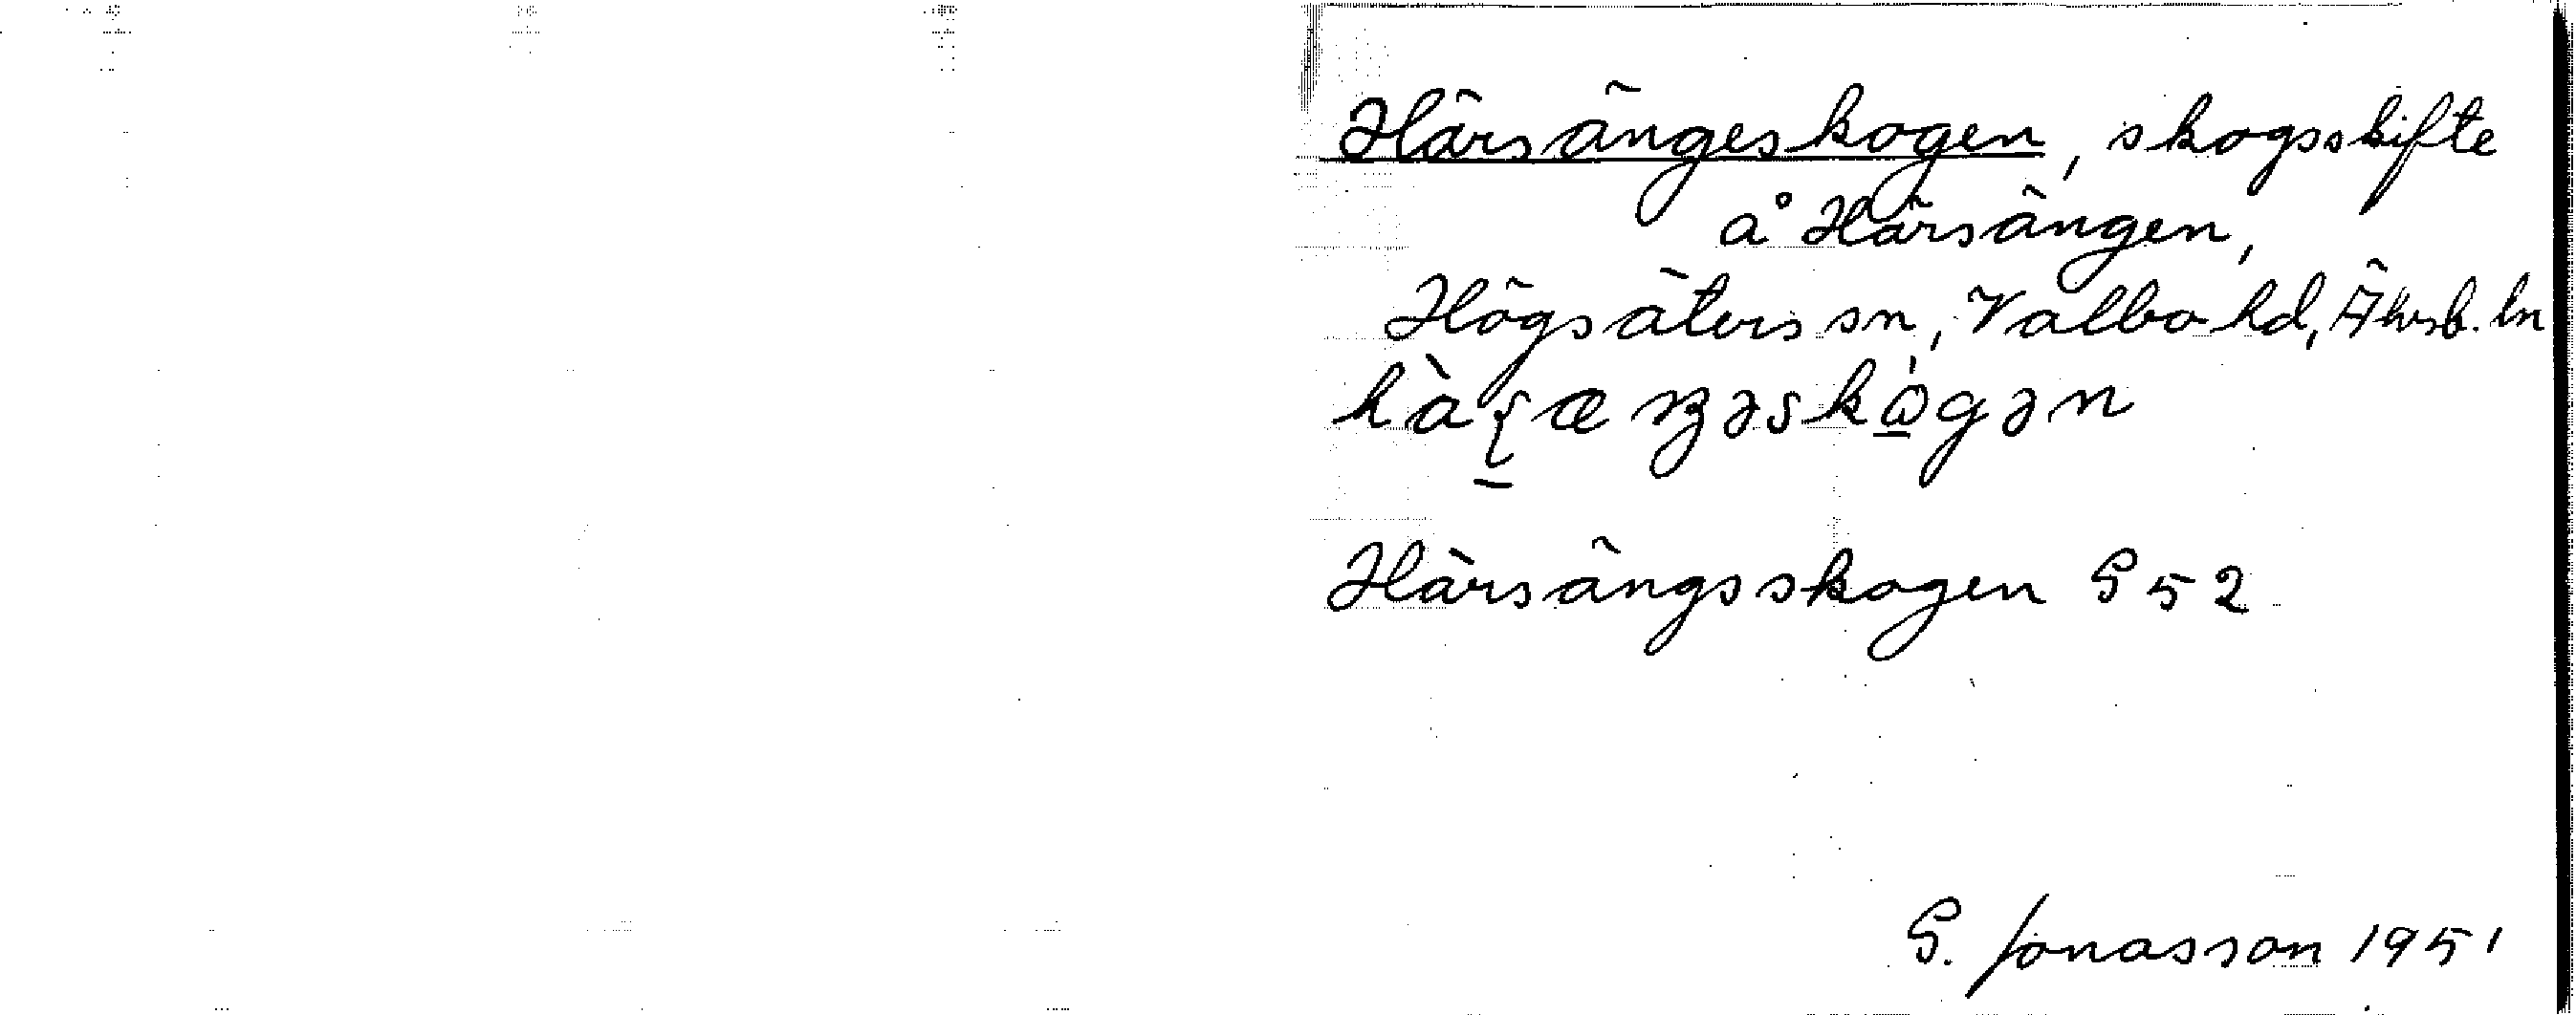 Härsängeskogen, skogsskifte
å Härsängen,
Högsäters sn, Valbo hd, Älvsb. ln
Härsängsskogen G 52
G. Jonasson 1951